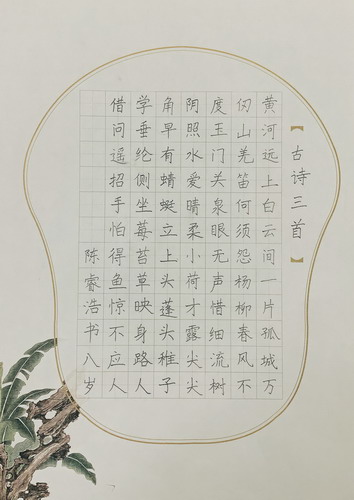 【古诗三首】
黄河远上白云间一片孤城万
仞山羌笛何须怨杨柳春风不
度玉门关泉眼无声惜细流树
阴照水爱晴柔小荷才露尖尖
角早有蜻蜓立上头蓬头稚子
学垂纶侧坐莓苔草映身路人
借问遥招手怕得鱼惊不应人
陈睿浩书八岁